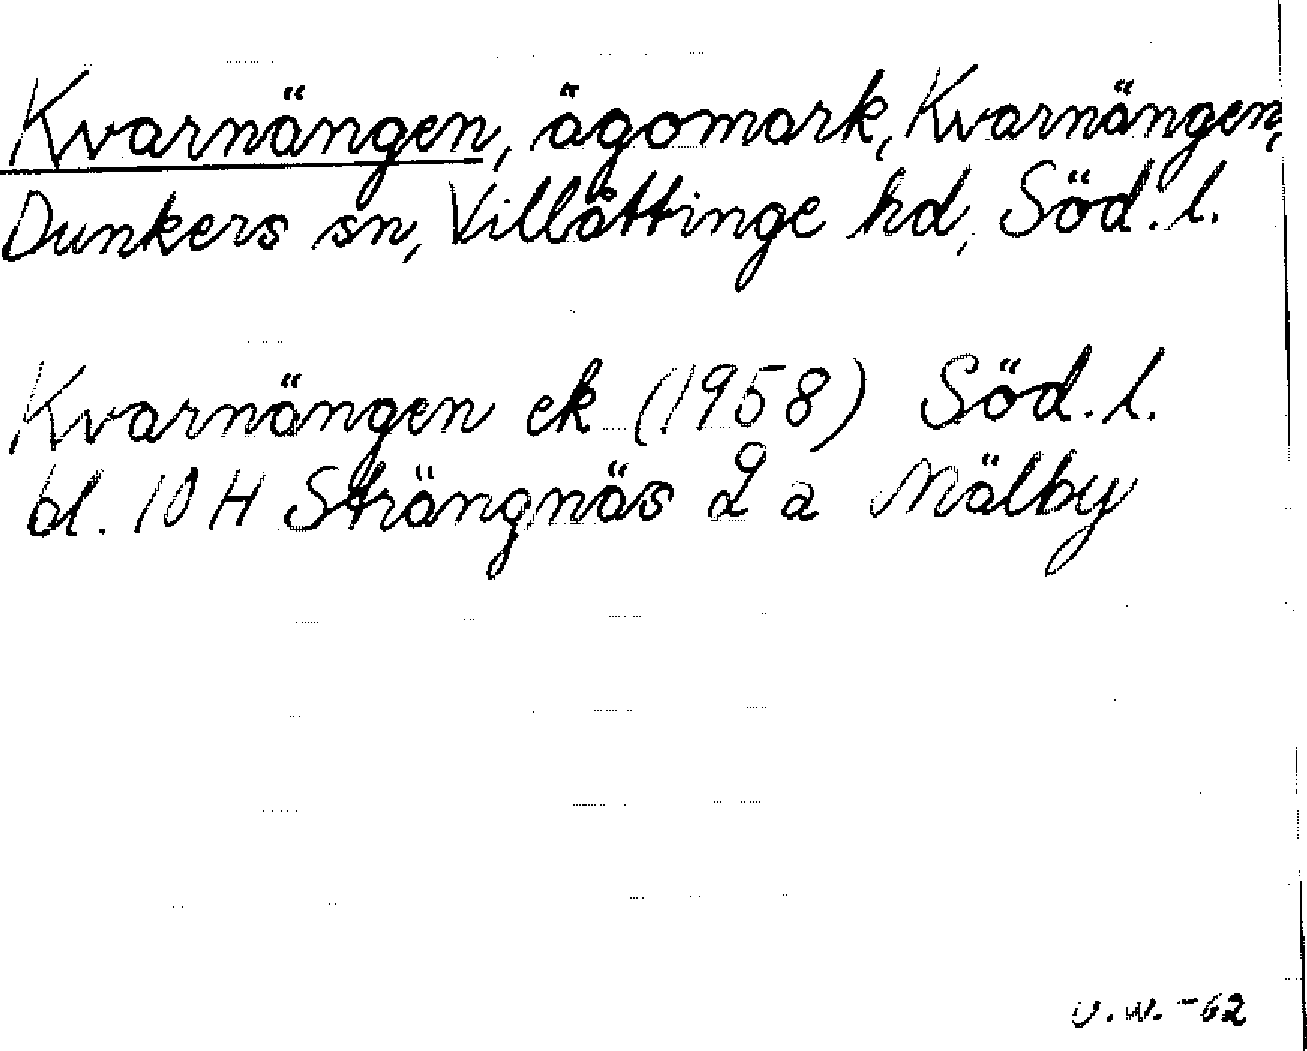 Kvarnängen, ägomark, Kvarnängen,
Dunkers sn, Villåttinge hd, Söd. l.
Kvarnängen ek (1958) Söd. l.
bl. 10 H Strängnäs 2 a Mälby
U.W. -62